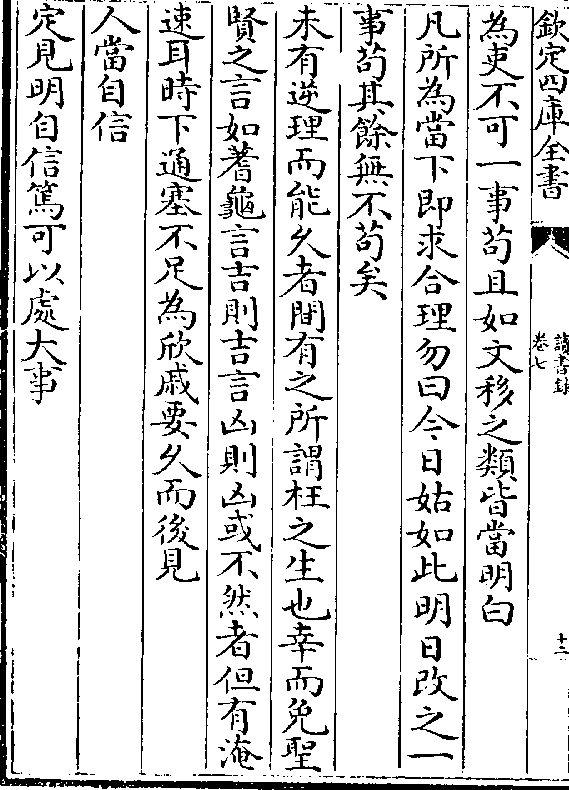 欽定四庫全書
讀書錄
卷七
十二
為吏不可一事苟且如文移之類皆當明白
凡所為當下即求合理勿曰今日姑如此明日改之一
事苟其餘無不苟矣
未有逆理而能久者間有之所謂枉之生也幸而免聖
賢之言如蓍龜言吉則吉言凶則凶或不然者但有淹
速耳時下通塞不足為欣戚要久而後見
人當自信
定見明自信篤可以處大事